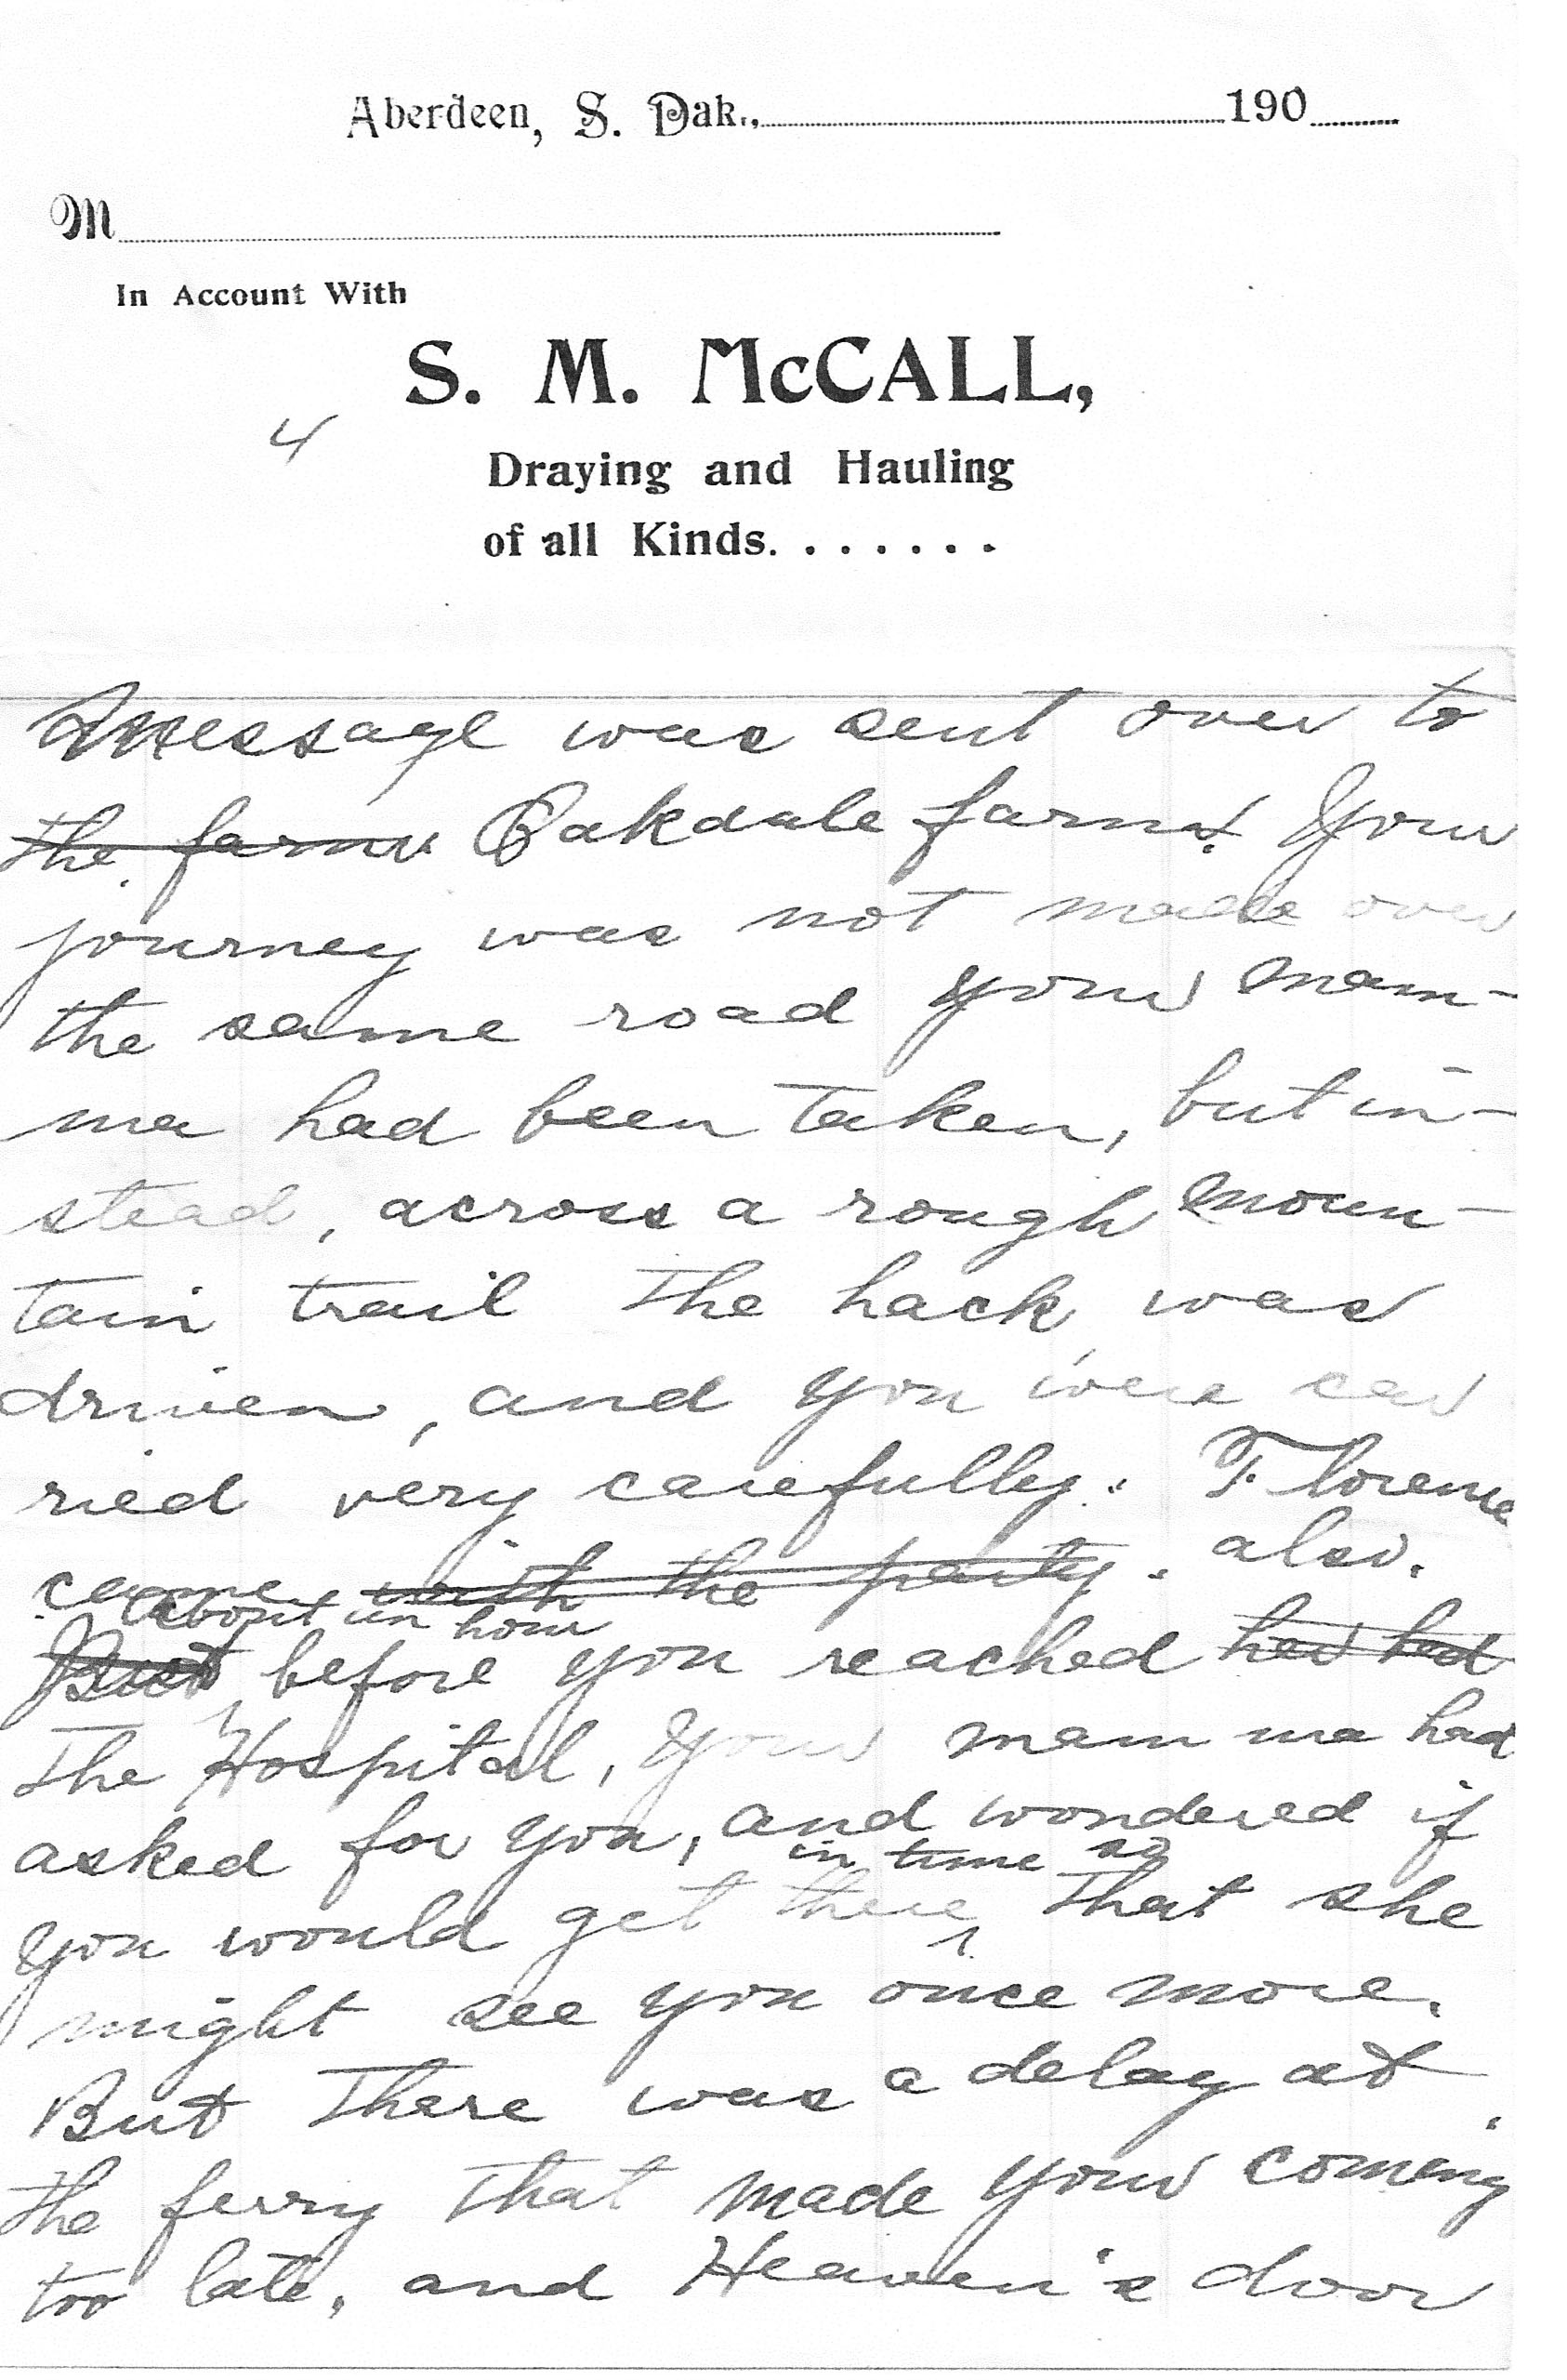 Aberdeen, S. Dak., 190
M
In Account With
S. M. McCALL,
4
Draying and Hauling
of all Kinds. . . . . . .
Message was sent over to
the farm Oakdale farm. Your
journey was not made over
the same road your mam-
ma had been taken, but in-
stead, across a rough moun-
tain trail the hack was
driven, and you were car
ried very carefully. Florence
came with the party. also.
about an hour
But before you reached her bed
the Hospital, your mamma had
asked for you, and wondered if
in time so
you would get there, that she
might see you once more.
But there was a delay at
the ferry that made your coming
too late, and Heaven's door